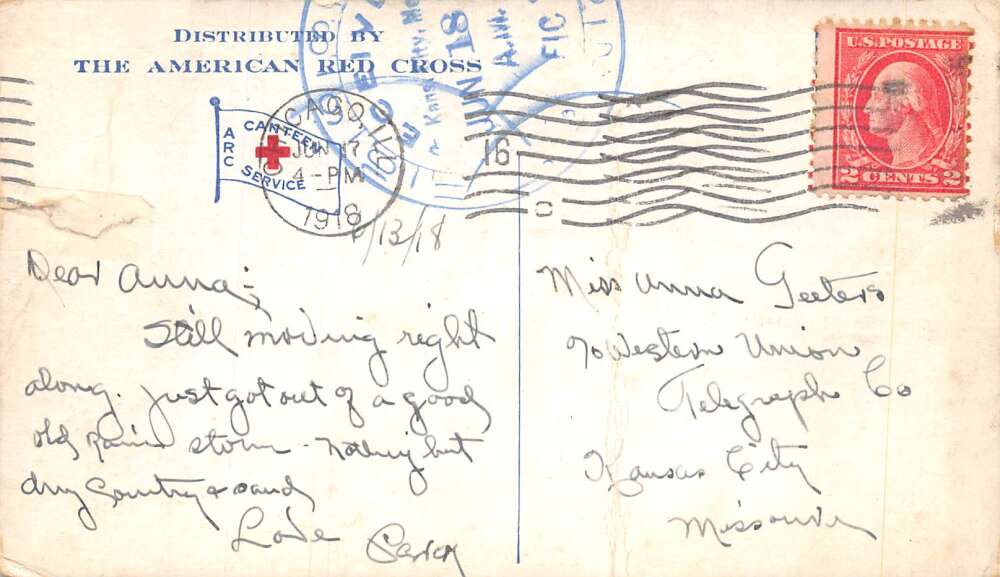 DISTRIBUTED BY
THE AMERICAN RED CROSS
ARC
CANTEEN
SERVICE
CAGO
JUN 17
4-PM
1918
16
JUN 18
A.M.
U.S. POSTAGE
2 CENTS 2
6/13/18
Dear Anna:
Still moving right
along. Just got out of a good
old Rain storm - nothing but
dry Country & sand
Love
Miss Anna Geeters
c/o Western Union
Telegraph Co
Kansas City
Missouri